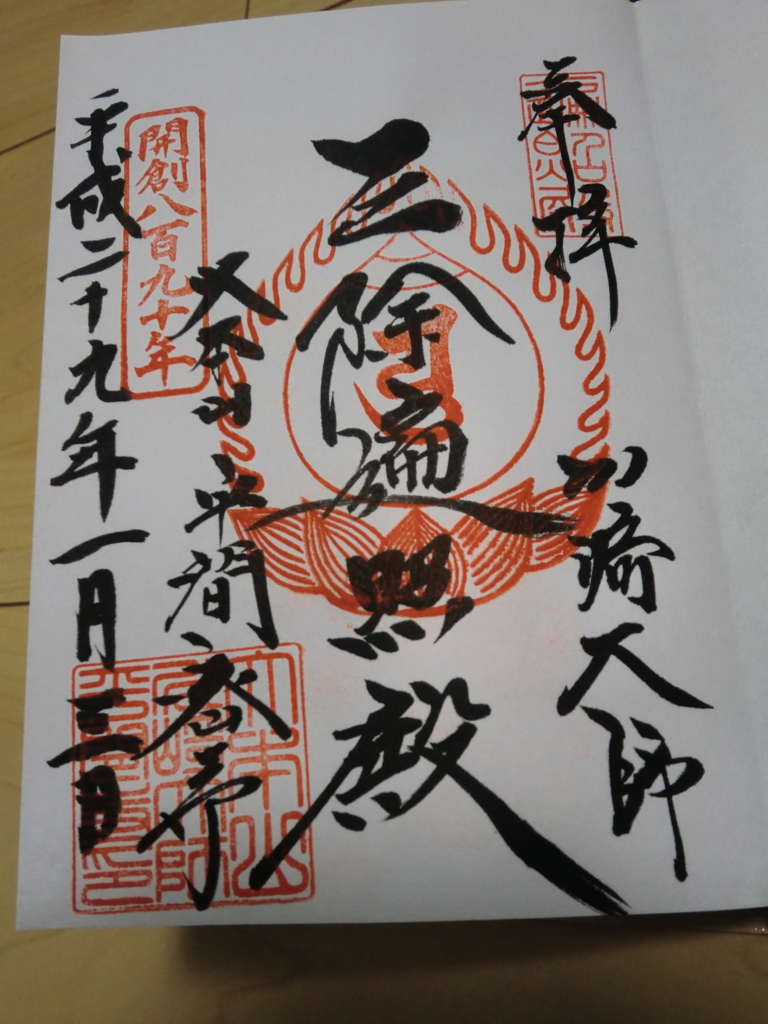 奉拝
川崎大師
厄除遍照殿
大本山平間密寺
開創八百九十年
平成二十九年一月三日